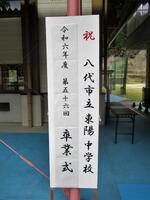 祝 八代市立東陽中学校
令和六年度 第五十六回
卒業式